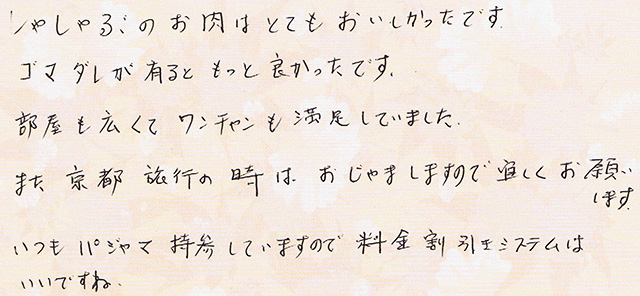 しゃしゃぶのお肉はとてもおいしかったです
ゴマダレが有るともっと良かったです.
部屋も広くてワンチャンも満足していました.
また京都旅行の時はおじゃましますので宜しくお願い
します
いつもパジャマ持参していますので料金割引きシステムは
いいですね.